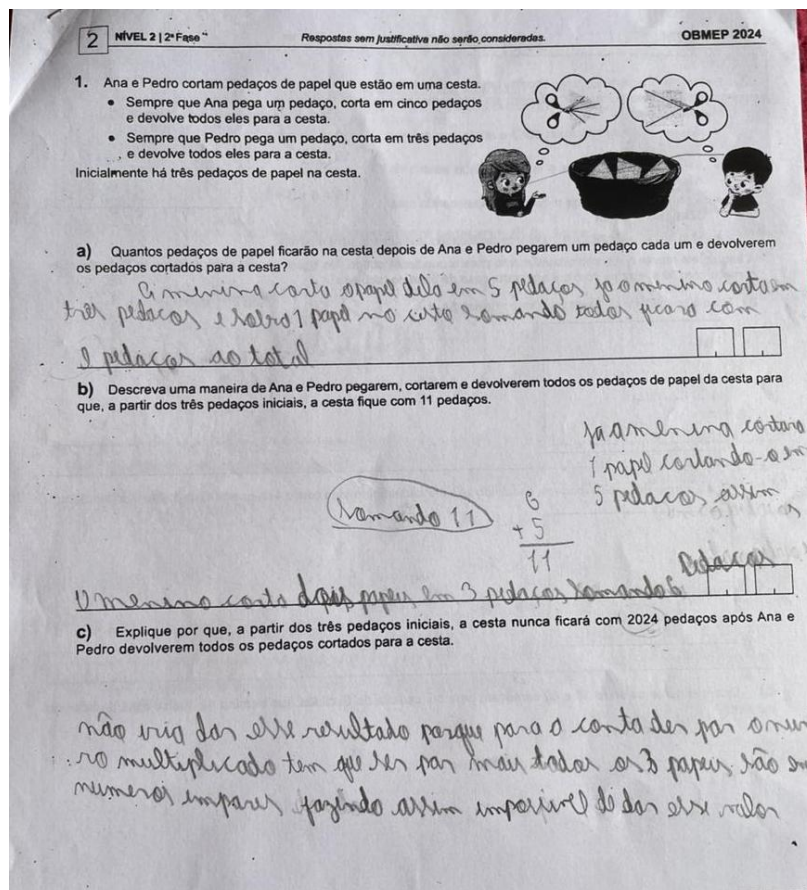 2 NÍVEL 2 | 2ª Fase Respostas sem justificativa não serão consideradas. OBMEP 2024
1. Ana e Pedro cortam pedaços de papel que estão em uma cesta.
• Sempre que Ana pega um pedaço, corta em cinco pedaços
e devolve todos eles para a cesta.
• Sempre que Pedro pega um pedaço, corta em três pedaços
e devolve todos eles para a cesta.
Inicialmente há três pedaços de papel na cesta.
a) Quantos pedaços de papel ficarão na cesta depois de Ana e Pedro pegarem um pedaço cada um e devolverem
os pedaços cortados para a cesta?
a menina corta o papel dela em 5 pedaços ja o menino corta em
três pedacos e sobro 1 papel no somando todos ficara com
9 pedacos ao total
b) Descreva uma maneira de Ana e Pedro pegarem, cortarem e devolverem todos os pedaços de papel da cesta para
que, a partir dos três pedaços iniciais, a cesta fique com 11 pedaços.
ja a menina cortara
1 papel cortando-o em
5 pedacos assim
somando 11
6
+ 5
11
O menino corta dois papeis em 3 pedacos somando 6 Pedacos
c) Explique por que, a partir dos três pedaços iniciais, a cesta nunca ficará com 2024 pedaços após Ana e
Pedro devolverem todos os pedaços cortados para a cesta.
não iria dar esse resultado porque para a conta der par o nume
ro multiplicado tem que ser par mais todos os 3 papeis são
numeros impares fazendo assim impossivel de dar esse valor